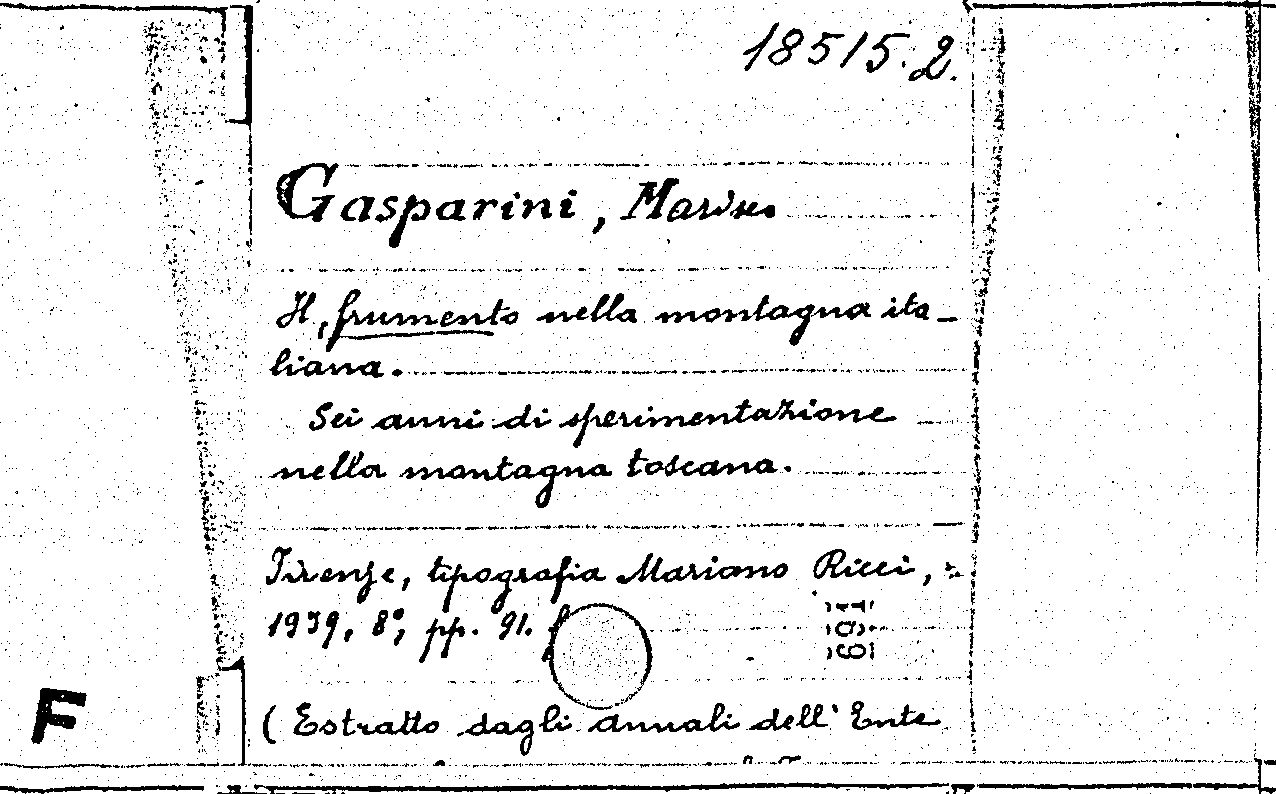 18515.2.
Gasparini, Marino
Il frumento nella montagna ita-
liana.
Sei anni di sperimentazione
nella montagna toscana.
Firenze, tipografia Mariano Ricci,
1939, 8°, pp. 91.
F
(Estratto dagli annali dell' Ente